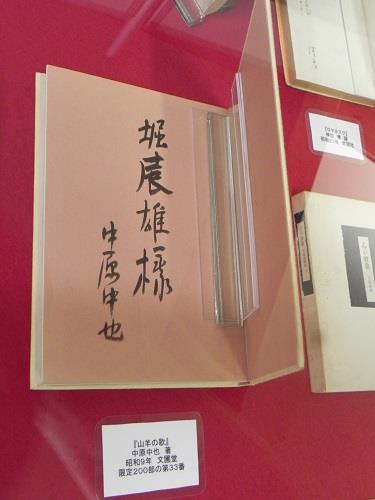 堀辰雄様
中原中也
『山羊の歌』
中原中也 著
昭和9年 文圃堂
限定200部の第33番